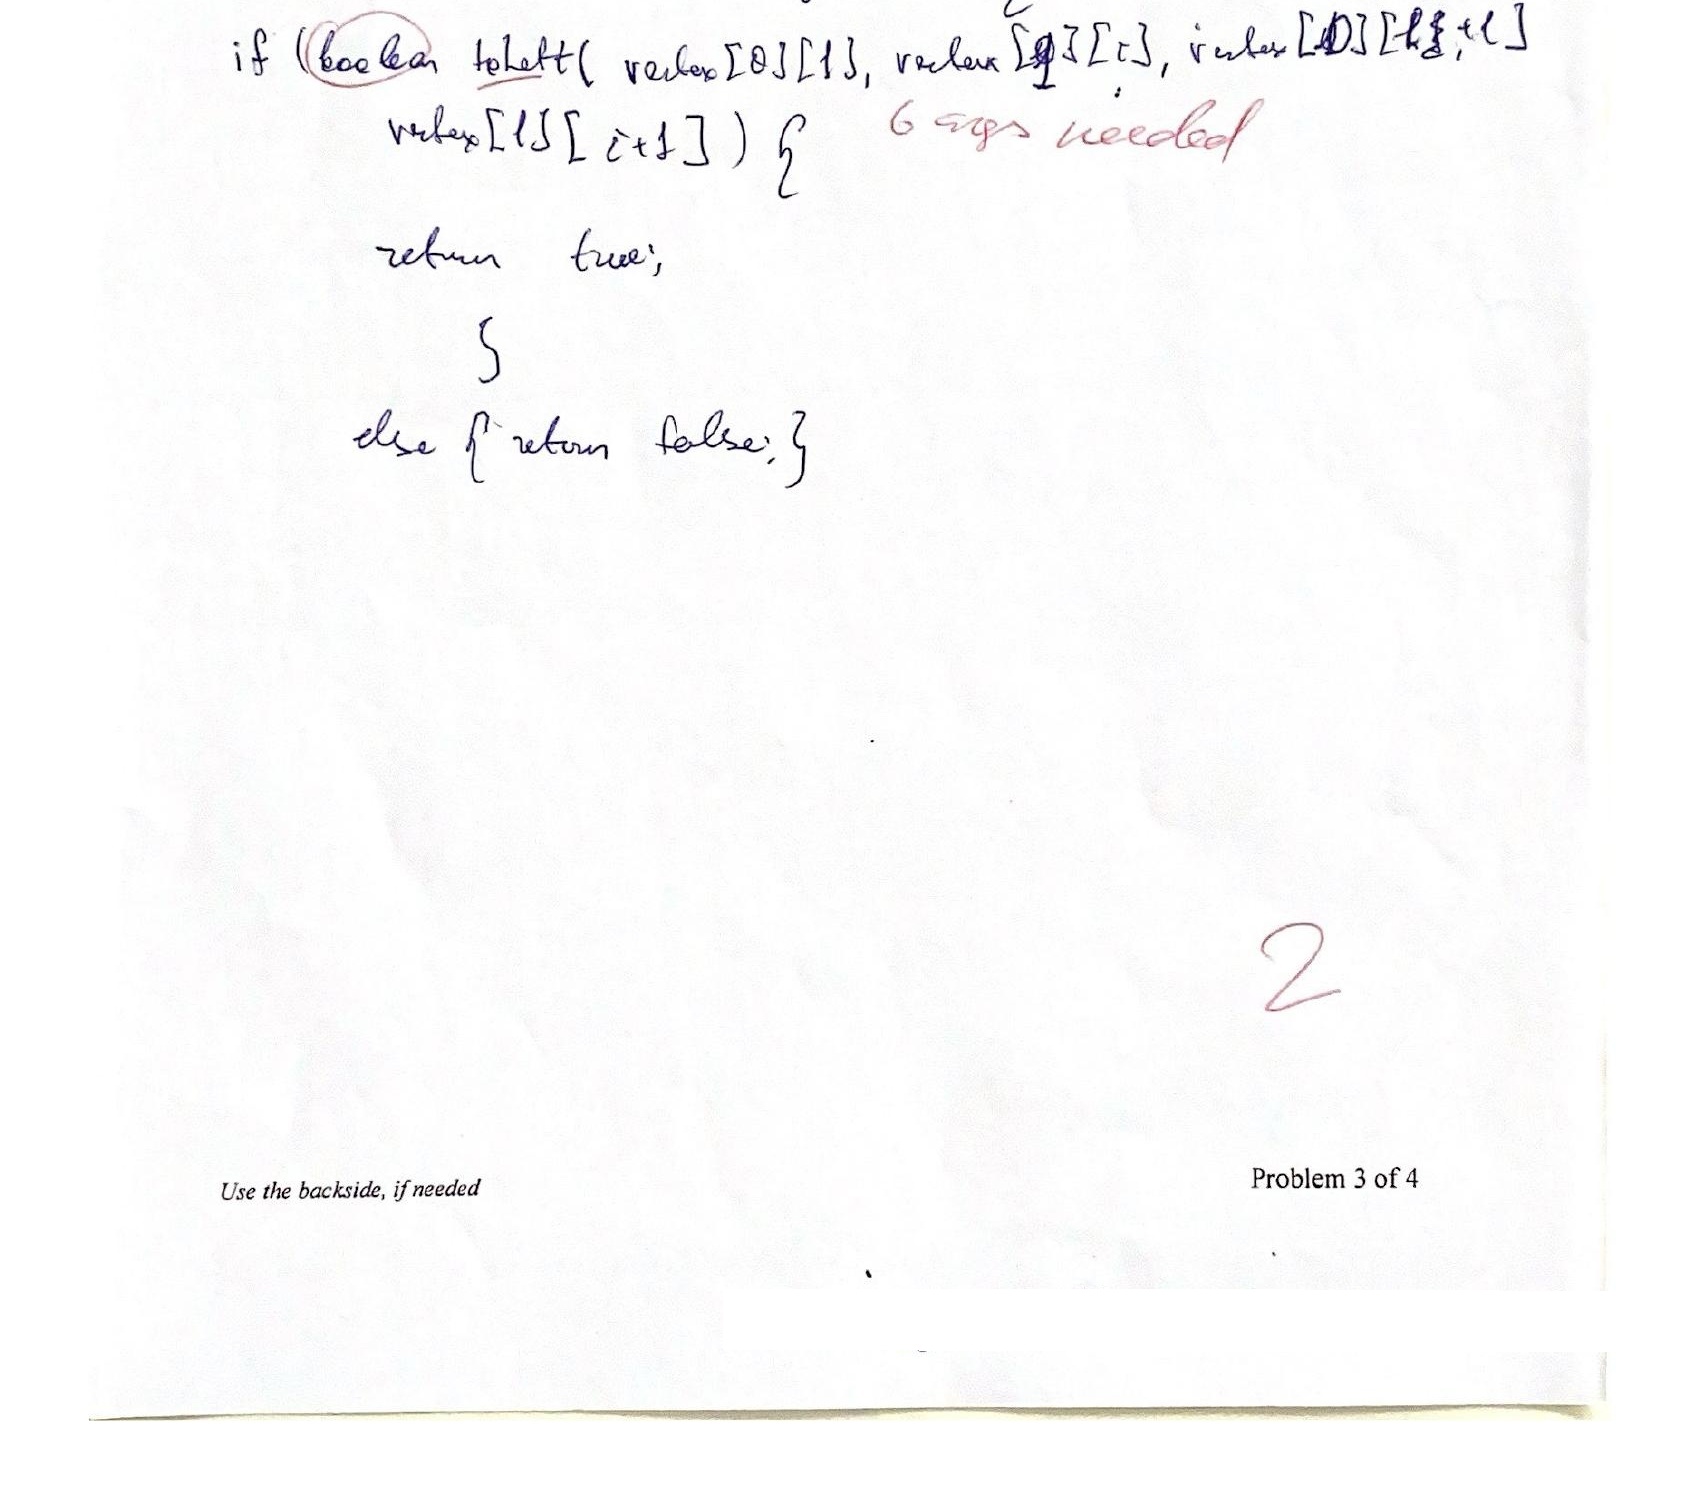 if (boolean toLeft( vertex[0][1], vertex[1][i], vertex[0][i+1]
vertex[1][i+1]) {
6 args needed
return true;
}
else { return false; }
2
Use the backside, if needed
Problem 3 of 4